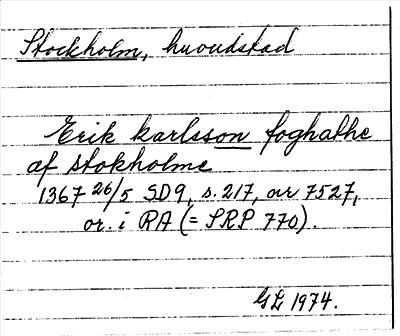 Stockholm, huvudstad
Erik karlsson foghathe
af stokholme
1367 26/5 SD9, s. 217, nr 7527,
or. i RA (= SRP 770).
GL 1974.